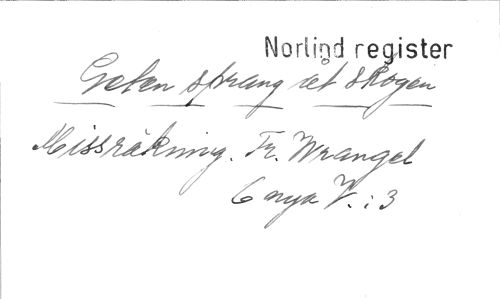 Norlind register
Geten sprang åt skogen
Missräkning. Fr. Wrangel
6 nya V. : 3